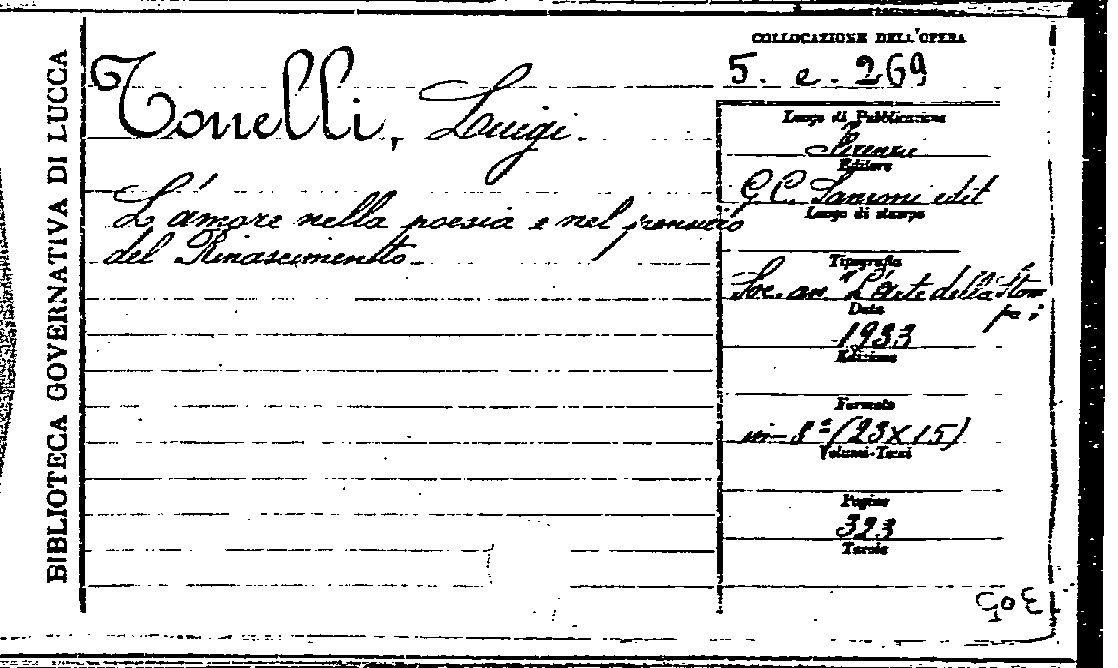 BIBLIOTECA GOVERNATIVA DI LUCCA
COLLOCAZIONE DELL'OPERA
5. e. 269
Tonelli, Luigi.
L'amore nella poesia e nel pensiero
del Rinascimento.
Luogo di Pubblicazione
Firenze
Editore
G. C. Sansoni edit
Luogo di stampa
Tipografia
Soc. an. "L'arte della Stam
pa;
Data
1933
Edizione
Formato
in-8º (23X15)
Volumi-Tomi
Pagine
323
Tavole